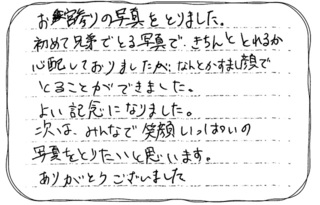 お宮参りの写真をとりました。
初めて兄弟でとる写真で、きちんととれるか
心配しておりましたが、なんとかすまし顔で
とることができました。
よい記念になりました。
次は、みんなで笑顔いっぱいの
写真をとりたいと思います。
ありがとうございました